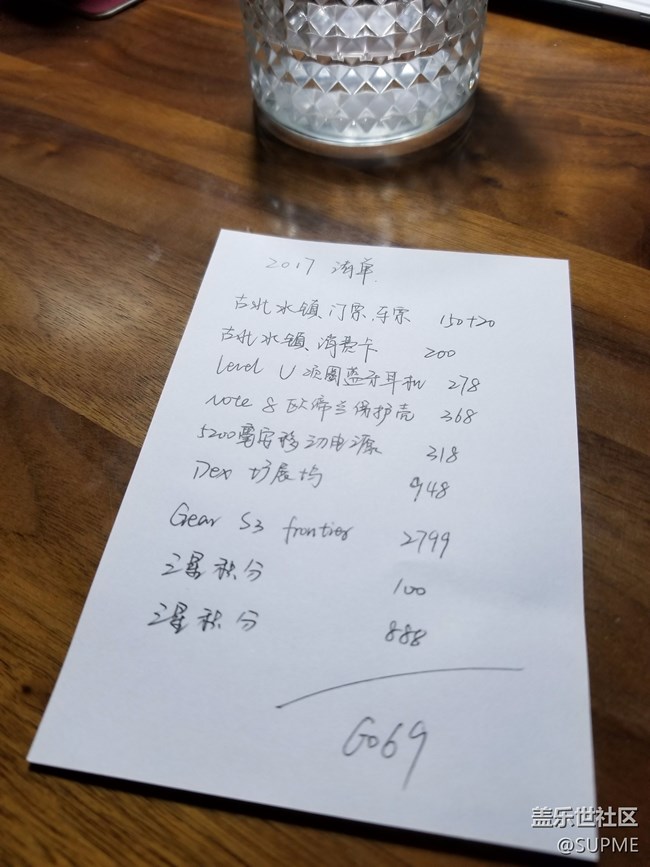 2017 清单
古北水镇、门票、车票 150+20
古北水镇、消费卡 200
Level U 项圈蓝牙耳机 278
Note 8 欧缔兰保护壳 368
5200毫安移动电源 318
Dex 扩展坞 948
Gear S3 frontier 2799
三星积分 100
三星积分 888
6069
盖乐世社区
@SUPME